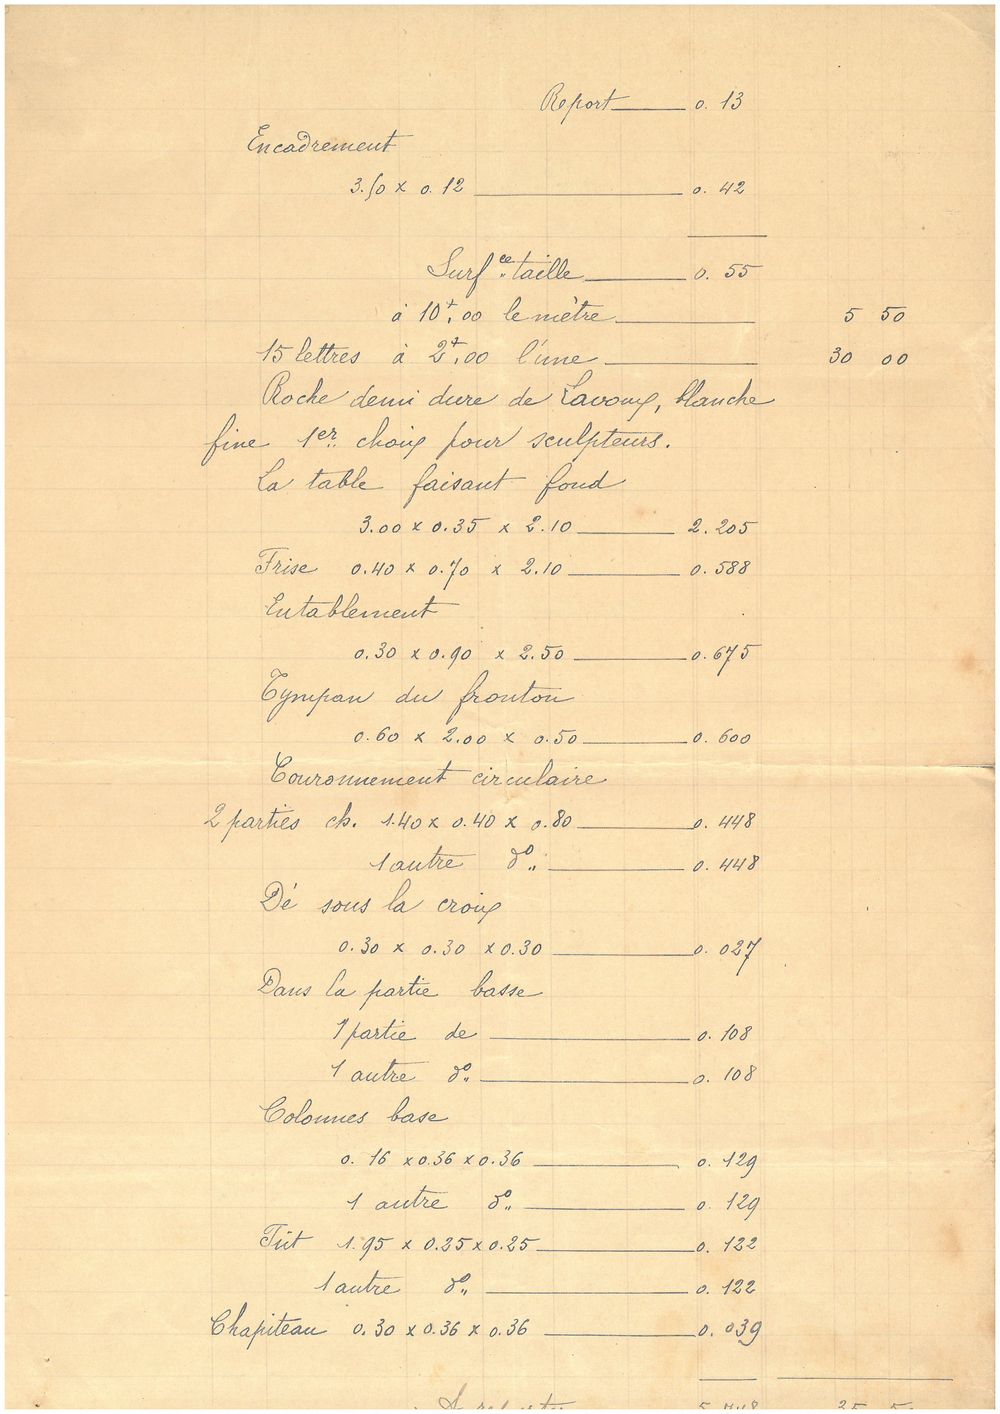 Report 0. 13
Encadrement
3.50 x 0.12 0. 42
Surf ce taille 0. 55
à 10f,00 le mètre 5 50
15 lettres à 2f,00 l'une 30 00
Roche demi dure de Lavoux, blanche
fine 1er choix pour sculpteurs.
La table faisant fond
3.00 x 0.35 x 2.10 2.205
Frise 0.40 x 0.70 x 2.10 0.588
Entablement
0.30 x 0.90 x 2.50 0.675
Tympan du fronton
0.60 x 2.00 x 0.50 0.600
Couronnement circulaire
2 parties ch. 1.40 x 0.40 x 0.80 0.448
1 autre do 0.448
Dé sous la croix
0.30 x 0.30 x 0.30 0.027
Dans la partie basse
1 partie de 0.108
1 autre do 0.108
Colonnes base
0.16 x 0.36 x 0.36 0.129
1 autre do 0.129
Fût 1.95 x 0.25 x 0.25 0.122
1 autre do 0.122
Chapiteau 0.30 x 0.36 x 0.36 0.039